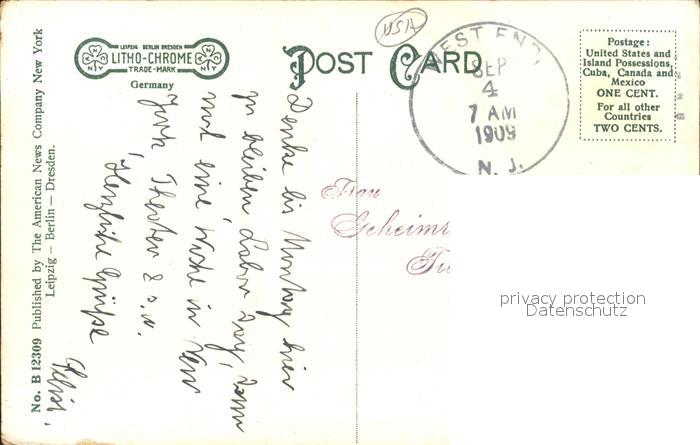 USA
LEIPZIG BERLIN DRESDEN
LITHO-CHROME
TRADE-MARK
Germany
POST CARD
WEST END,
SEP
4
7 AM
1909
N. J.
Postage:
United States and
Island Possessions,
Cuba, Canada and
Mexico
ONE CENT.
For all other
Countries
TWO CENTS.
No. B 12309 Published by The American News Company New York
Leipzig – Berlin – Dresden.
Denke bis Montag hier
zu bleiben, Labor Day, dann
und eine Woche in New
York Theater
Herzliche Grüsse
Frau
Geheimr
privacy protection
Datenschutz